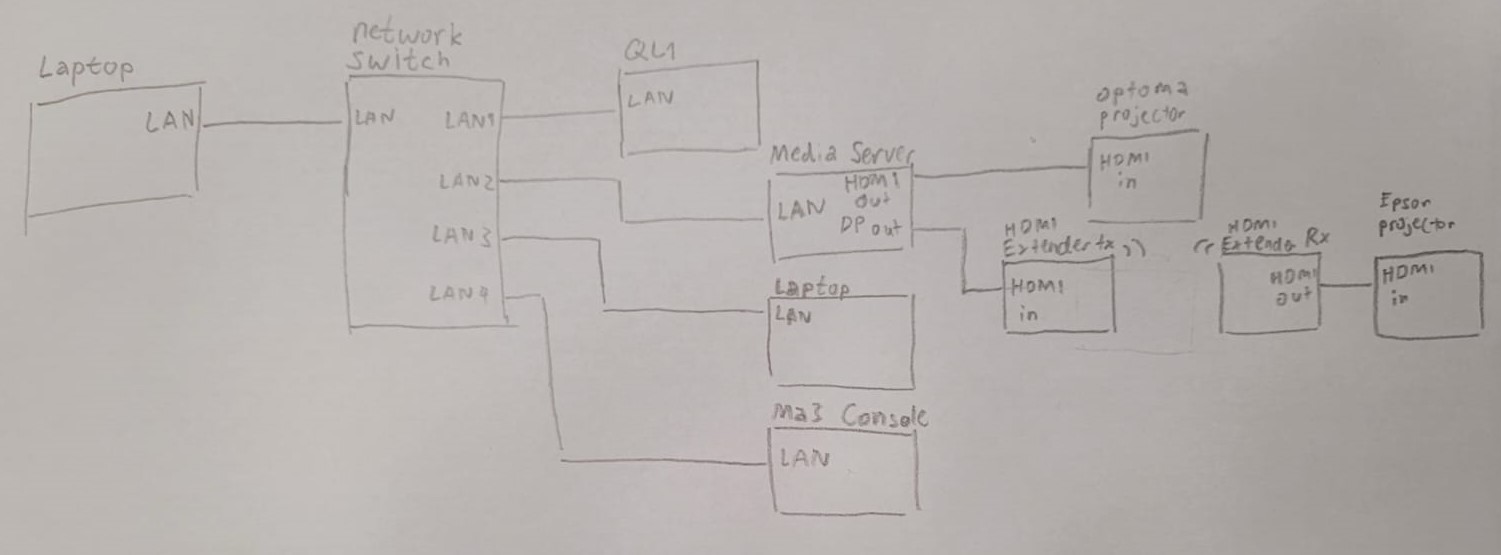 Laptop
LAN
network
switch
LAN
LAN1
LAN2
LAN3
LAN4
QL1
LAN
Media Server
HDMI
out
LAN
DP out
Laptop
LAN
Ma3 Console
LAN
optoma
projector
HDMI
in
HDMI
Extender tx
HDMI
in
HDMI
Extender Rx
HDMI
out
Epson
projector
HDMI
in